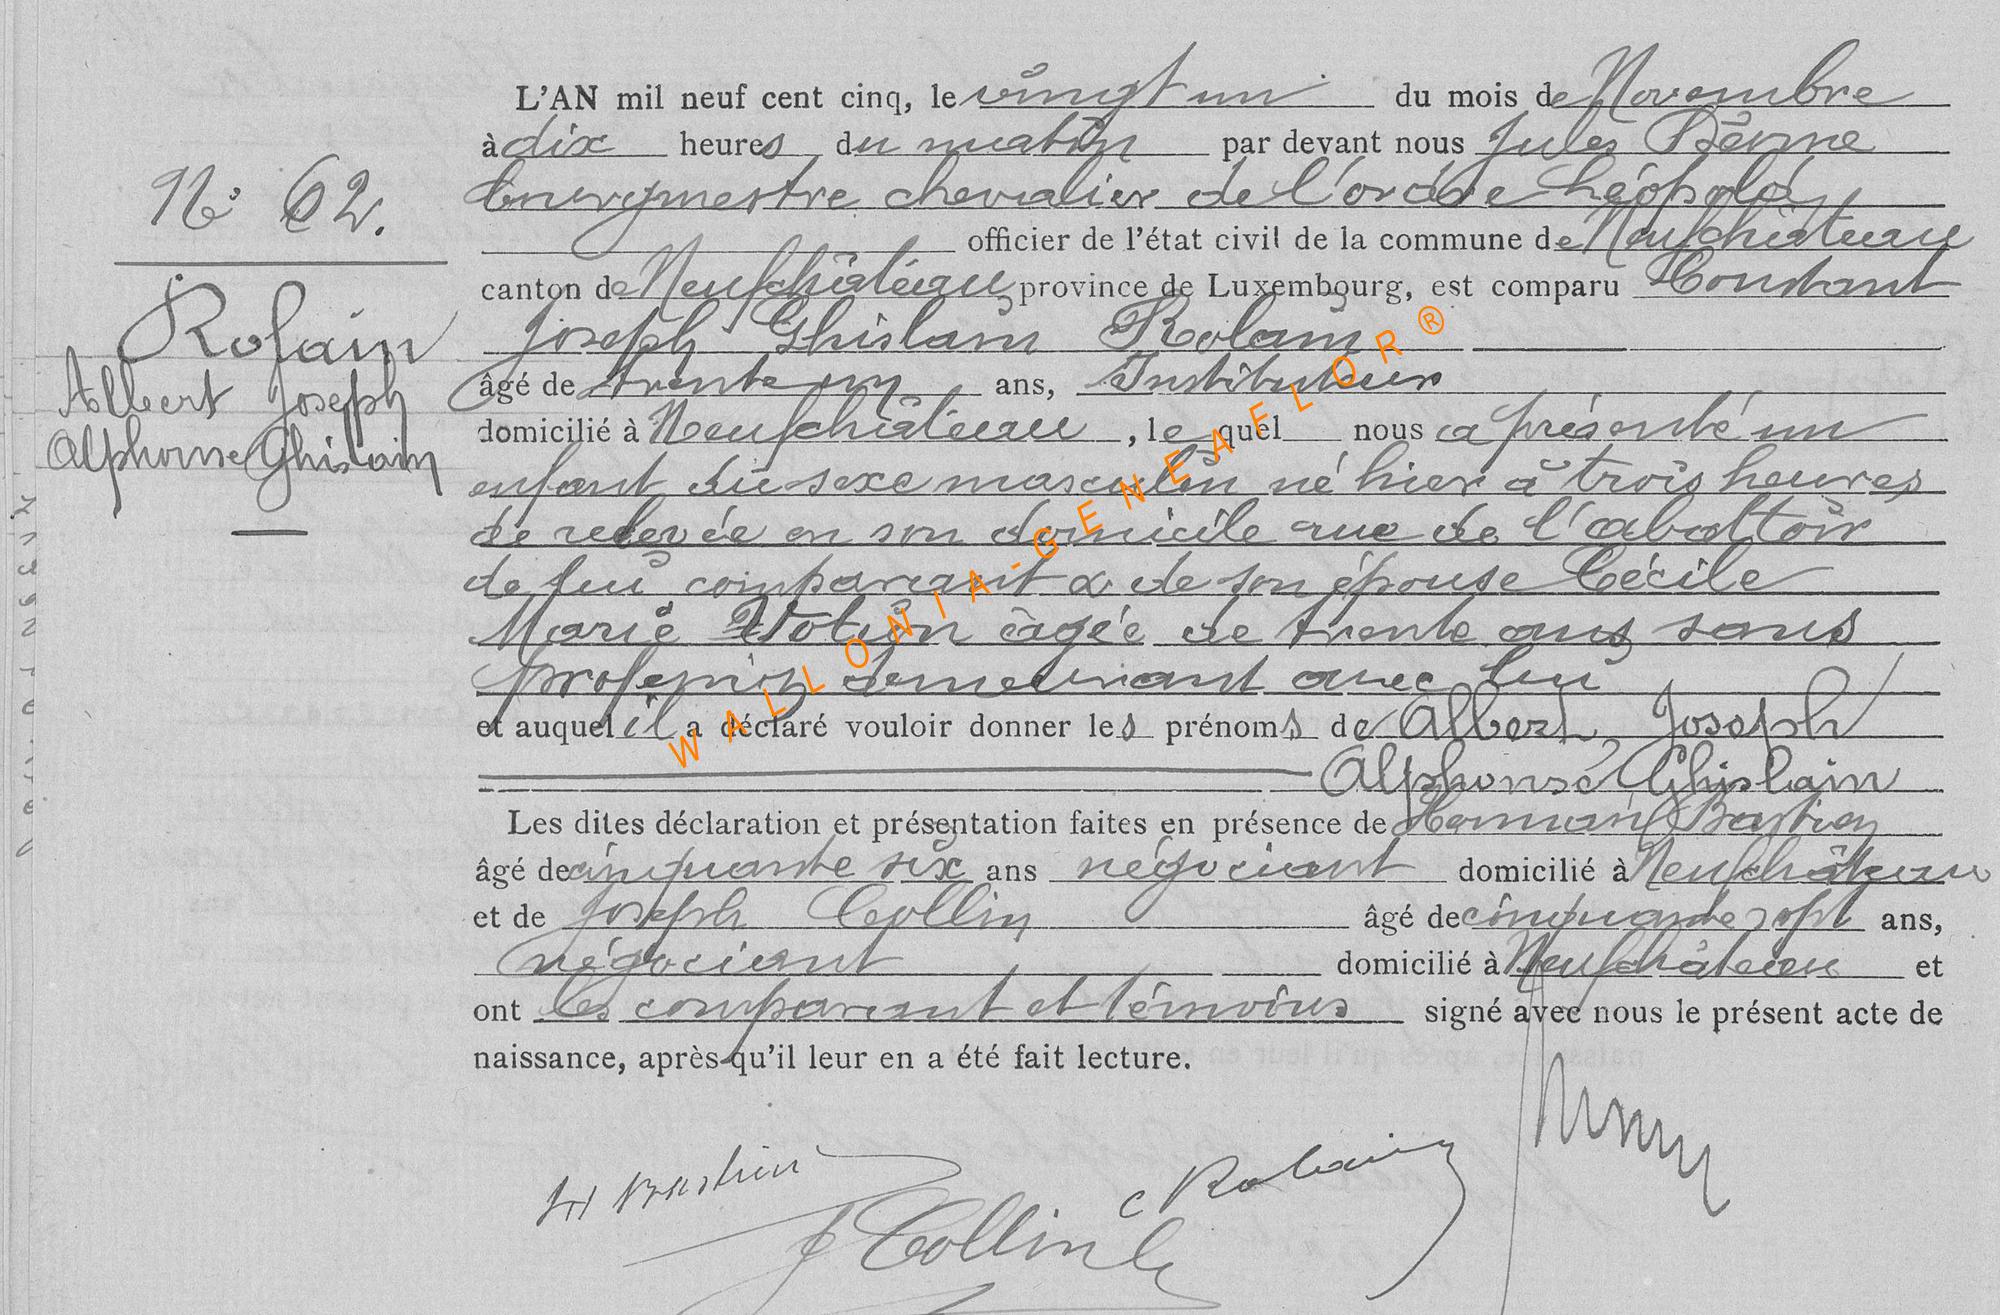 L'AN mil neuf cent cinq, le vingt un du mois de Novembre
à dix heures du matin par devant nous Jules
bourgmestre chevalier de l'ordre Léopold
officier de l'état civil de la commune de Neufchâteau
canton de Neufchâteau province de Luxembourg, est comparu Constant
Joseph Ghislain Rolain
âgé de trente un ans, Instituteur
domicilié à Neufchâteau, le quel nous a présenté un
enfant du sexe masculin né hier à trois heures
de relevée en son domicile rue de l'abattoir
de lui comparant & de son épouse Cécile
Marie Wotrin âgée de trente ans sans
profession demeurant avec lui
et auquel il a déclaré vouloir donner les prénoms de Albert, Joseph
Alphonse, Ghislain
Les dites déclaration et présentation faites en présence de Bastien
âgé de cinquante six ans négociant domicilié à Neufchâteau
et de Joseph Collin âgé de cinquante sept ans,
négociant domicilié à Neufchâteau et
ont les comparant et témoins signé avec nous le présent acte de
naissance, après qu'il leur en a été fait lecture.
No 62.
Rolain
Albert Joseph
Alphonse Ghislain
H Bastien
C Rolain
J Collin
WALLONIA-GENEAFLOR®